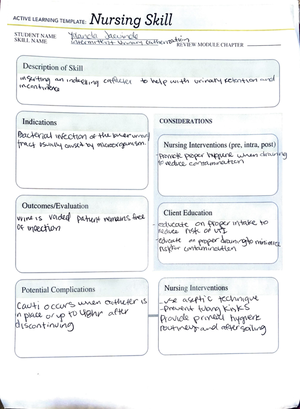 ACTIVE LEARNING TEMPLATE: Nursing Skill
STUDENT NAME
SKILL NAME Intermittent Urinary Catheterization
REVIEW MODULE CHAPTER
Description of Skill
inserting an indwelling catheter to help with urinary retention and
incontinence
Indications
Bacterial infection of the lower urinary
tract usually caused by microorganism.
CONSIDERATIONS
Nursing Interventions (pre, intra, post)
Promote proper hygiene when cleaning
to reduce contamination
Outcomes/Evaluation
urine is voided patient remains free
of infection
Client Education
- educate on proper intake to
reduce risk of UTI
- educate on proper draining to minimize
risk for contamination
Potential Complications
Cauti occurs when catheter is
in place or up to 48hr after
discontinuing
Nursing Interventions
- use aseptic technique
- prevent tubing kinks
Provide perineal hygiene
routinely and after soiling